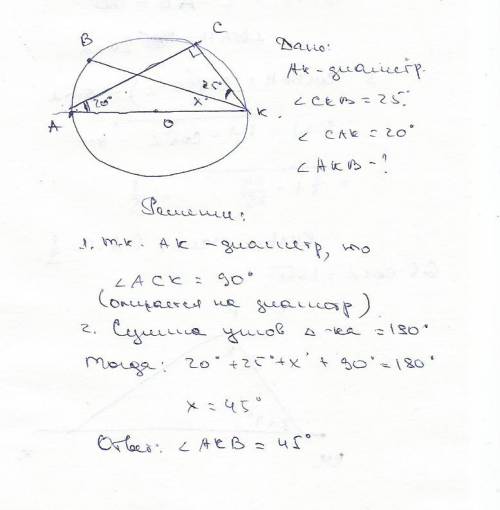 B
C
25°
20°
x°
A
O
K
Дано:
AK - диаметр.
∠CKB = 25°
∠CAK = 20°
∠AKB - ?
Решение:
1. т.к. AK - диаметр, то
∠ACK = 90°
(опирается на диаметр)
2. Сумма углов Δ-ка = 180°
Тогда: 20° + 25° + x° + 90° = 180°
x = 45°
Ответ: ∠AKB = 45°